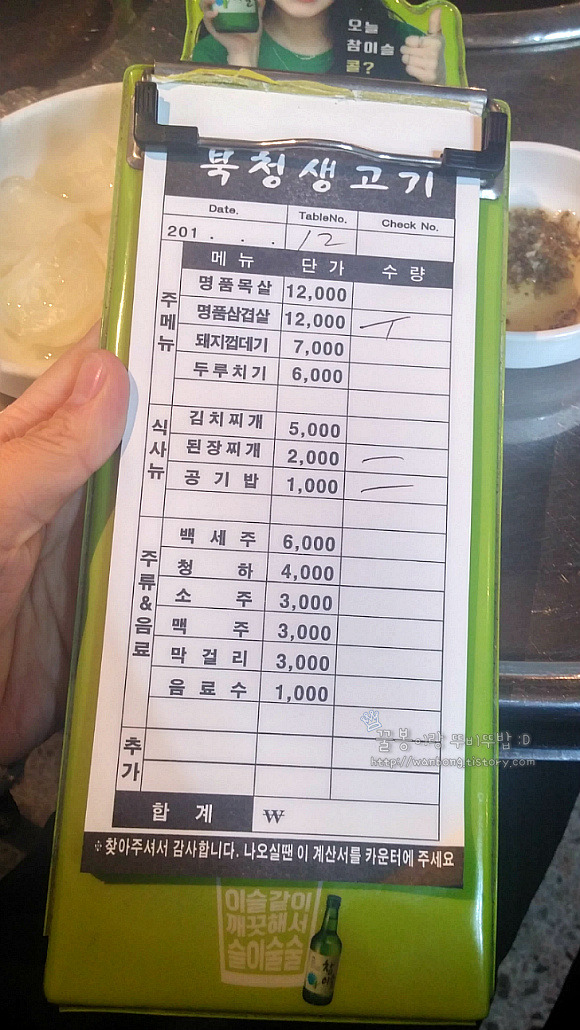 오늘
참이슬
콜?
북청생고기
Date. TableNo. Check No.
201 . . . 12
메뉴 단가 수량
주메뉴
명품목살 12,000
명품삼겹살 12,000 ㅜ
돼지껍데기 7,000
두루치기 6,000
식사뉴
김치찌개 5,000
된장찌개 2,000 一
공기밥 1,000 一
주류&음료
백세주 6,000
청하 4,000
소주 3,000
맥주 3,000
막걸리 3,000
음료수 1,000
추가
합계 ₩
찾아주셔서 감사합니다. 나오실땐 이 계산서를 카운터에 주세요
꿀봉이랑 뚜비뚜밥 :D
http://wantong.tistory.com
이슬같이
깨끗해서
술이술술